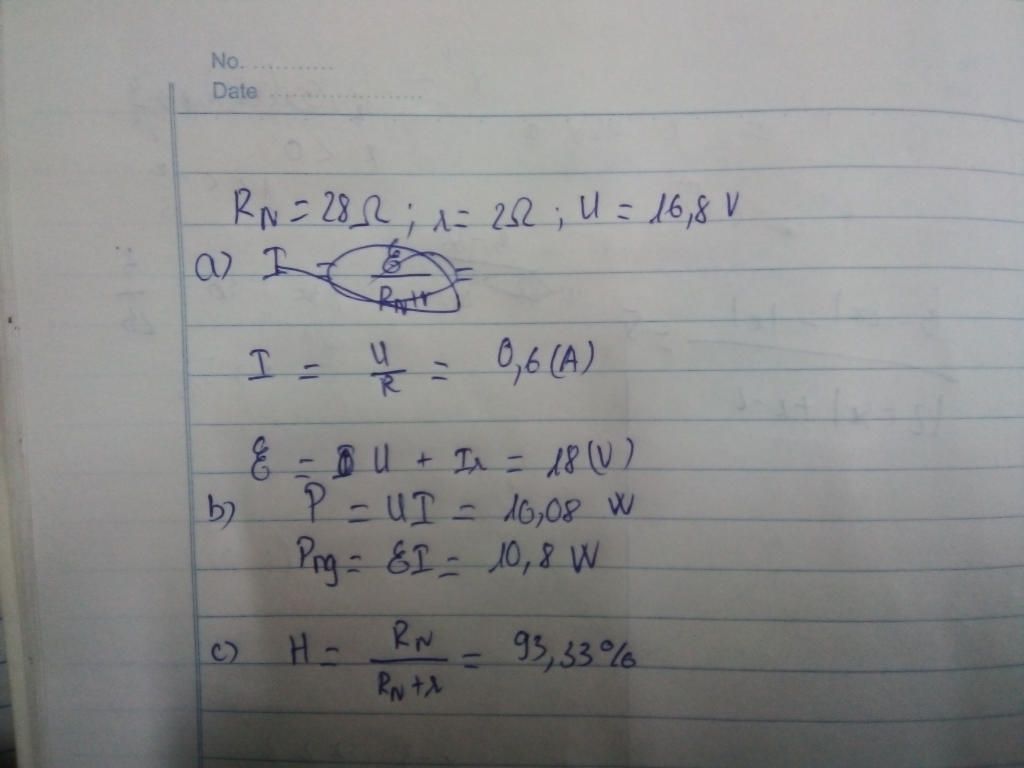 No. ............
Date .......................
R_N = 28Ω ; r = 2Ω ; U = 16,8 V
a) I = ℰ/(R_N+r) =
I = U/R = 0,6(A)
ℰ = U + Ir = 18(V)
b) P = UI = 10,08 W
Png = ℰI = 10,8 W
c) H = R_N/(R_N+r) = 93,33%